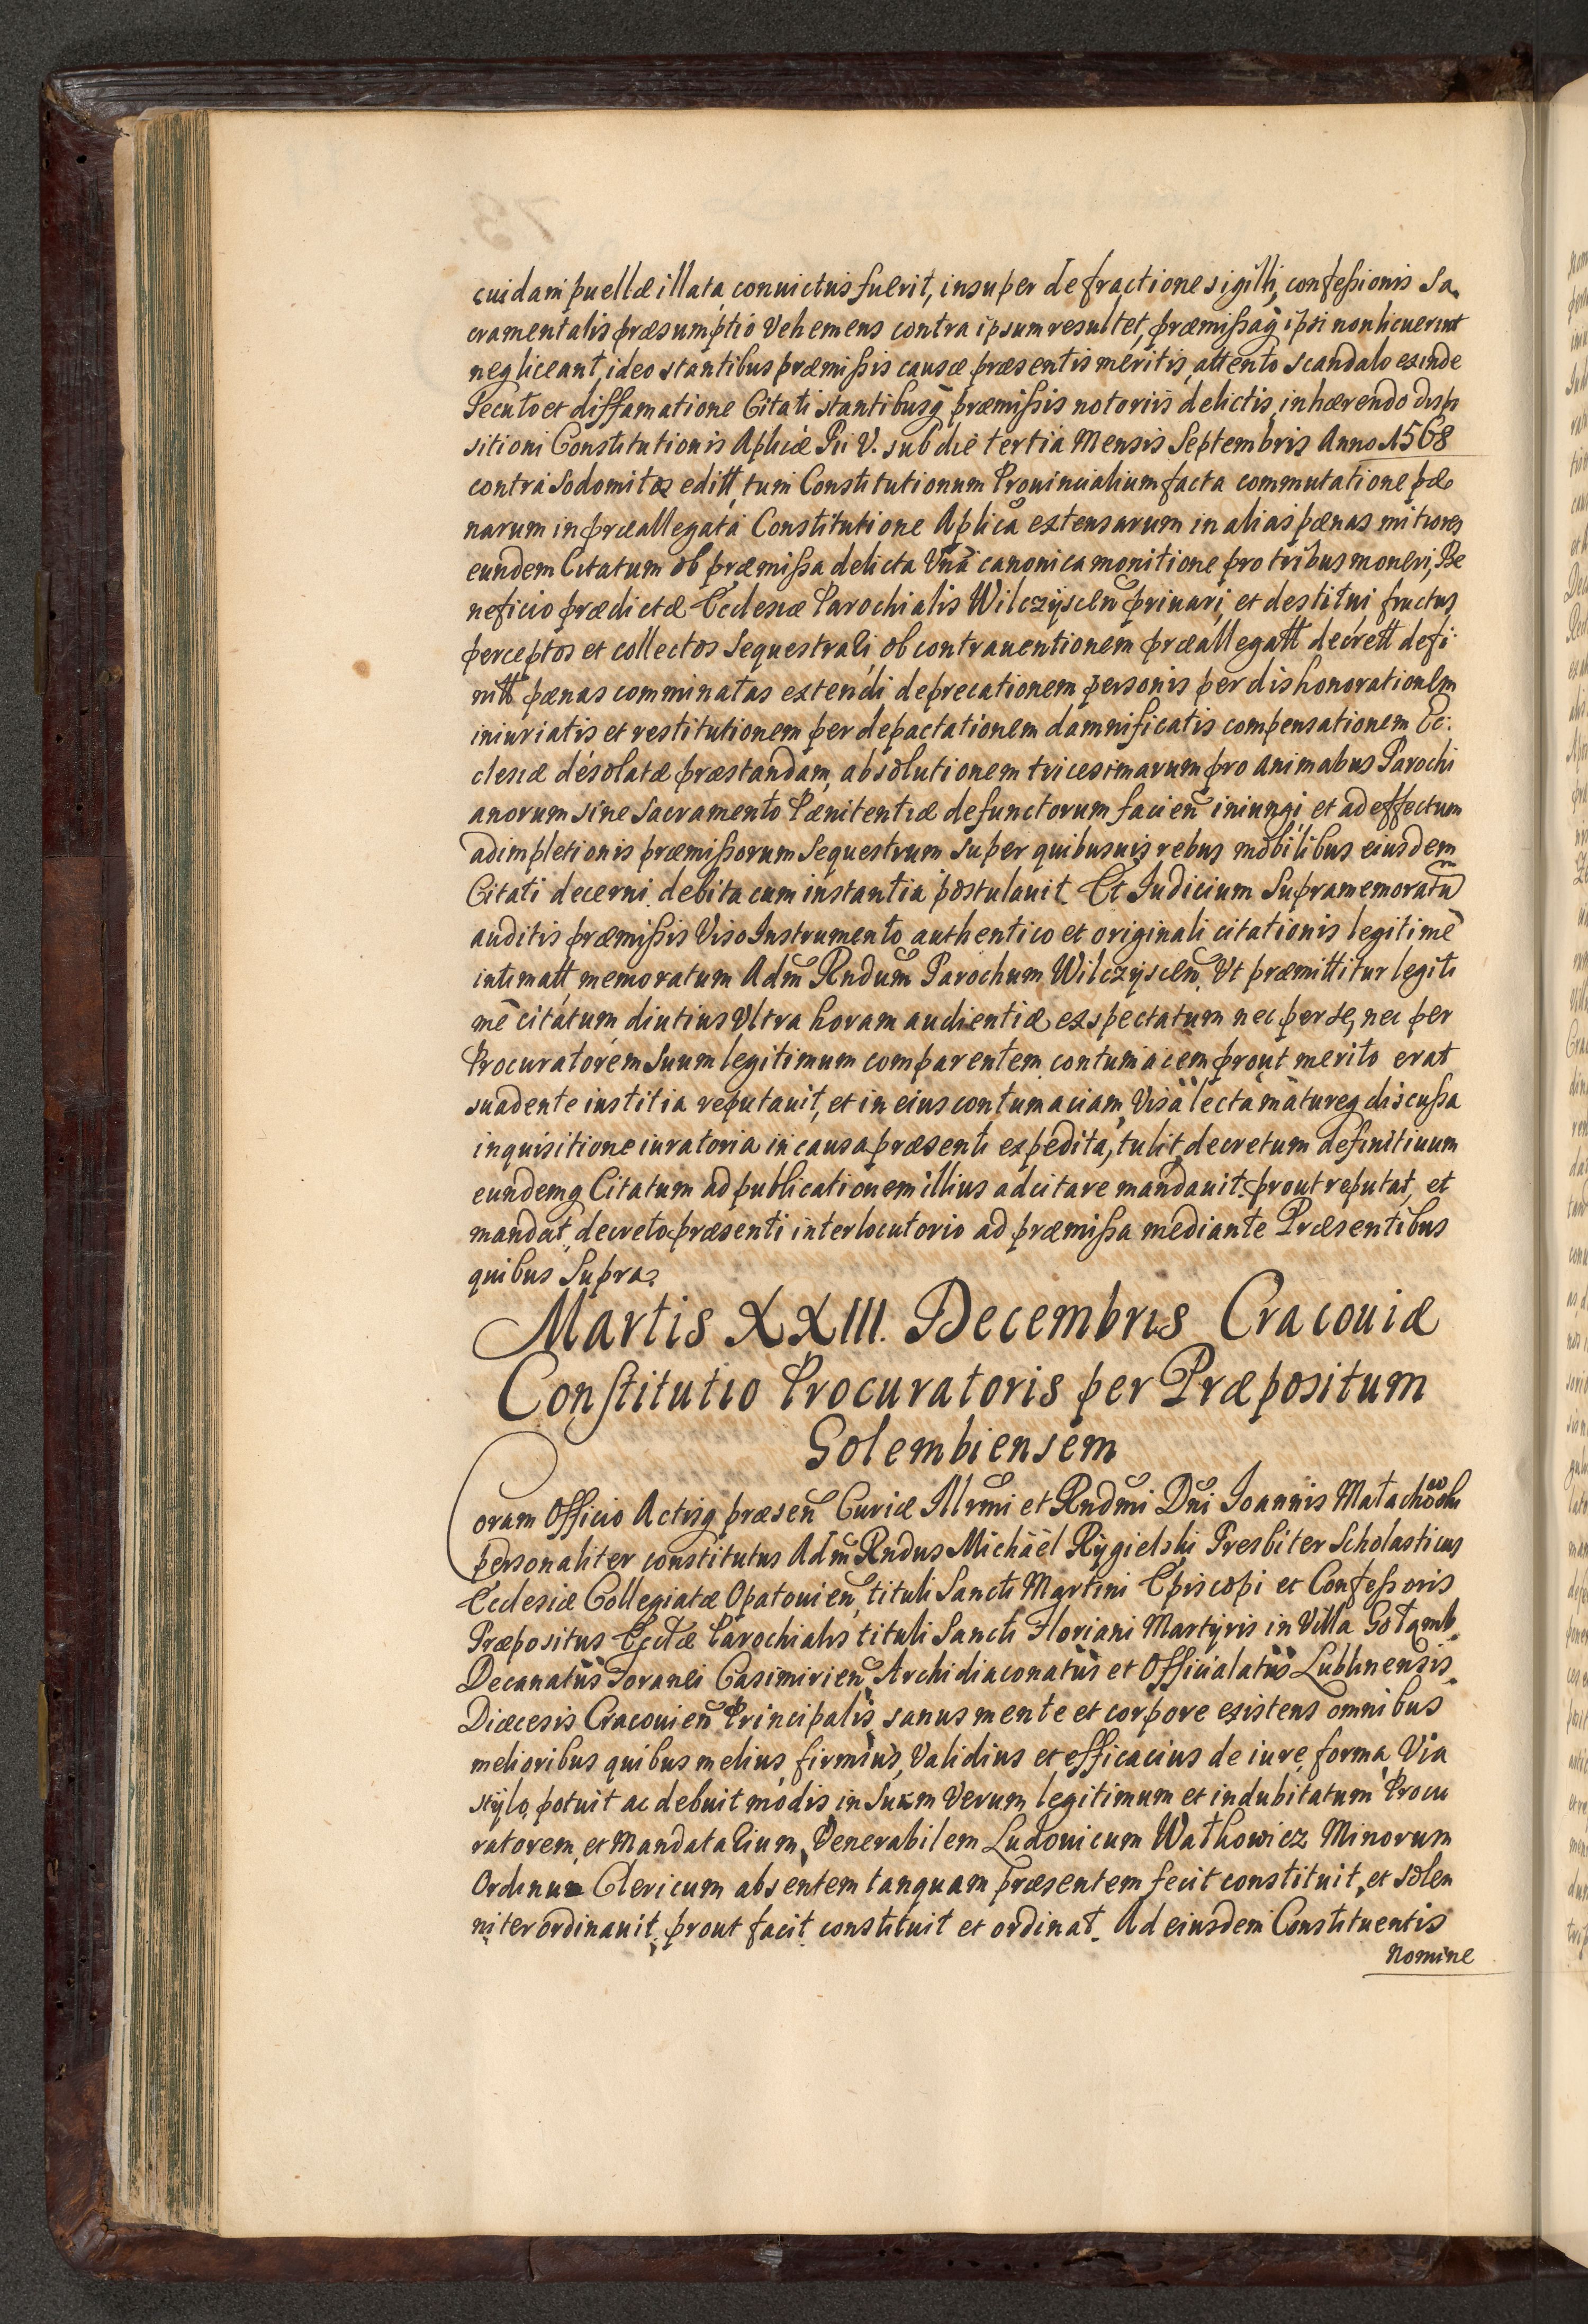 cuidam puellæ illata, convictus fuerit, insuper de fractione sigilli, confeßionis Sa
cramentalis præsumptio Vehemens contra ipsum resultet, præmißaq ipsi non licuerint
neq liceant, ideo stantibus præmißis causæ præsentis meritis, attento scandalo exinde
Secuto et diffamatione Citati stantibusq præmißis notoriis delictis, inhærendo dispo
sitioni Constitutionis Aplicæ Pii V. sub die tertia Mensis Septembris Anno 1568
contra Sodomitas editt, tum Constitutionum Prouincialium facta commutatione pæ
narum in præallegata Constitutione Aplica extensarum in alias pænas mitiores
eundem Citatum ob præmißa delicta Vna canonica monitione pro tribus moneri, Be
neficio prædictæ Ecclesiæ Parochialis Wilczyscen priuari, et destitui, fructus
perceptos et collectos Sequestrari, ob contrauentionem præallegatt decrett defi
nitt pænas comminatas extendi deprecationem personis per dishonorationem
iniuriatis et restitutionem per depactationem damnificatis compensationem Ec:
clesiæ désolatæ præstandam, absolutionem tricesimarum pro animabus Parochi
anorum sine Sacramento Pænitentiæ defunctorum facien iniungi, et ad effectum
adimpletionis præmißorum Sequestrum super quibusuis rebus mobilibus eiusdem
Citati decerni debita cum instantia postulauit. Et Iudicium Supramemoratu
auditis præmißis Viso Instrumento authentico et originali citationis legitimè
intimatt, memoratum Adm Rndum Parochum Wilczyscen, Vt præmittitur legiti
mè citatum diutius Vltra horam audientiæ exspectatum nec per se, nec per
Procuratorem Suum legitimum comparentem contumacem prout merito erat
suadente iustitia reputauit, et in eius contumaciam, Visa lecta matureq discußa
inquisitione iuratoria in causa præsenti expedita, tulit decretum definitiuum
eundemq Citatum ad publicationem illius adcitare mandauit. prout reputat, et
mandat, decreto præsenti interlocutorio ad præmißa mediante Præsentibus
quibus Supra
Martis XXIII. Decembris Cracouiæ
Constitutio Procuratoris per Præpositum
Golembiensem
Coram Officio Actisq præsen Curiæ Illrmi et Rndmi Dni Ioannis Małachowski
personaliter constitutus Adm Rndus Michaël Rÿgielski Presbiter Scholasticus
Ecclesiæ Collegiatæ Opatouien, tituli Sancti Martini Episcopi et Confeßoris
Præpositus Eccłæ Parochialis tituli Sancti Floriani Martÿris in Villa Gołąmb.
Decanatus Foranei Casimirien, Archidiaconatus et Officialatus Lublinensis.
Diæcesis Cracouien Principalis, sanus mente et corpore existens omnibus
melioribus quibus melius, firmius, Validius et efficacius de iure, forma, Via
stÿlo, potuit ac debuit modis, in Suum Verum legitimum et indubitatum Procu
ratorem, et Mandatarium, Venerabilem Ludouicum Wałkowicz Minorum
Ordinum Clericum absentem tanquam præsentem fecit constituit, et solen
niter ordinauit, prout facit constituit et ordinat. Ad eiusdem Constituentis
Nomine